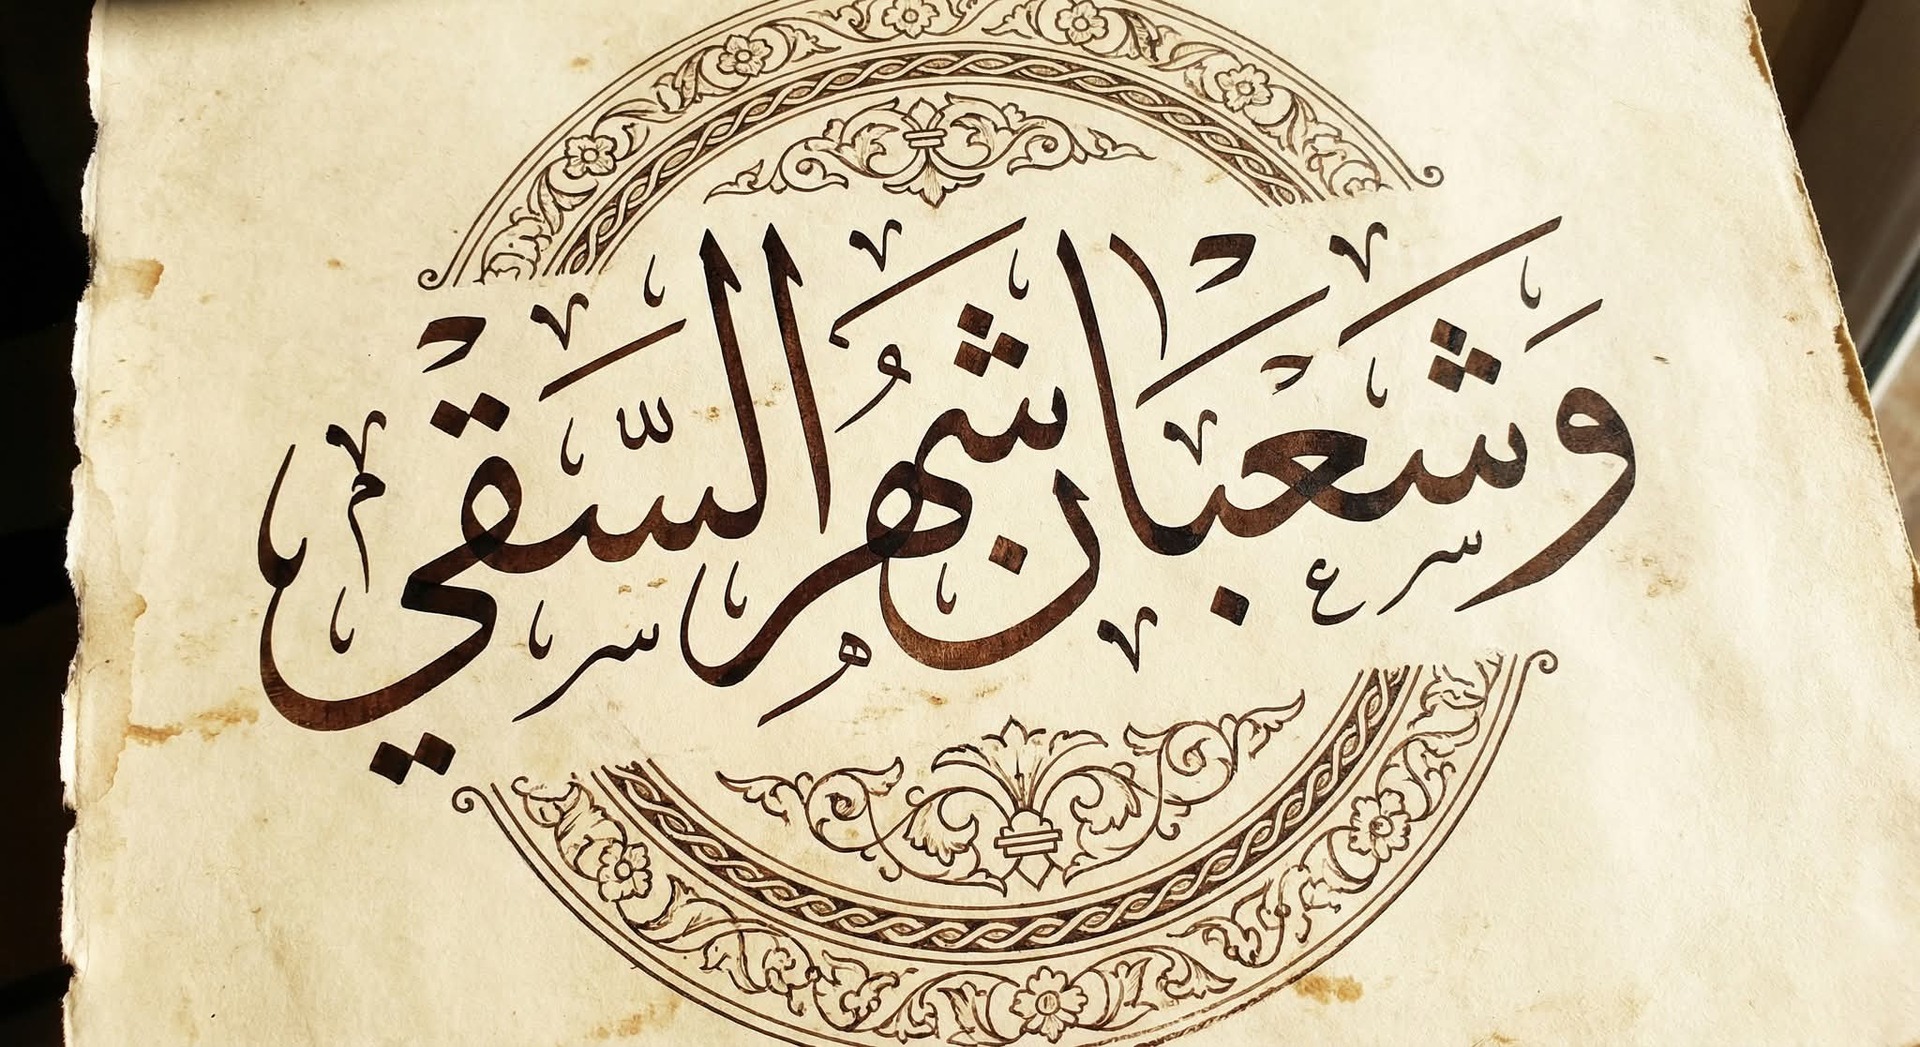 وشعبان شهر السقي